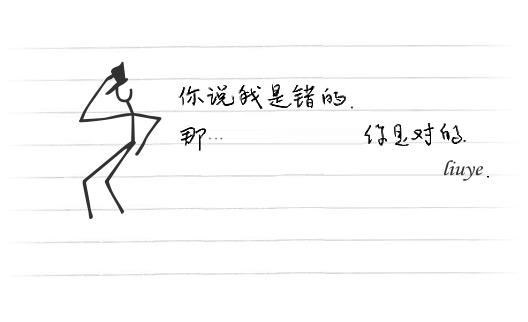 你说我是错的.
那… 你是对的.
liuye.